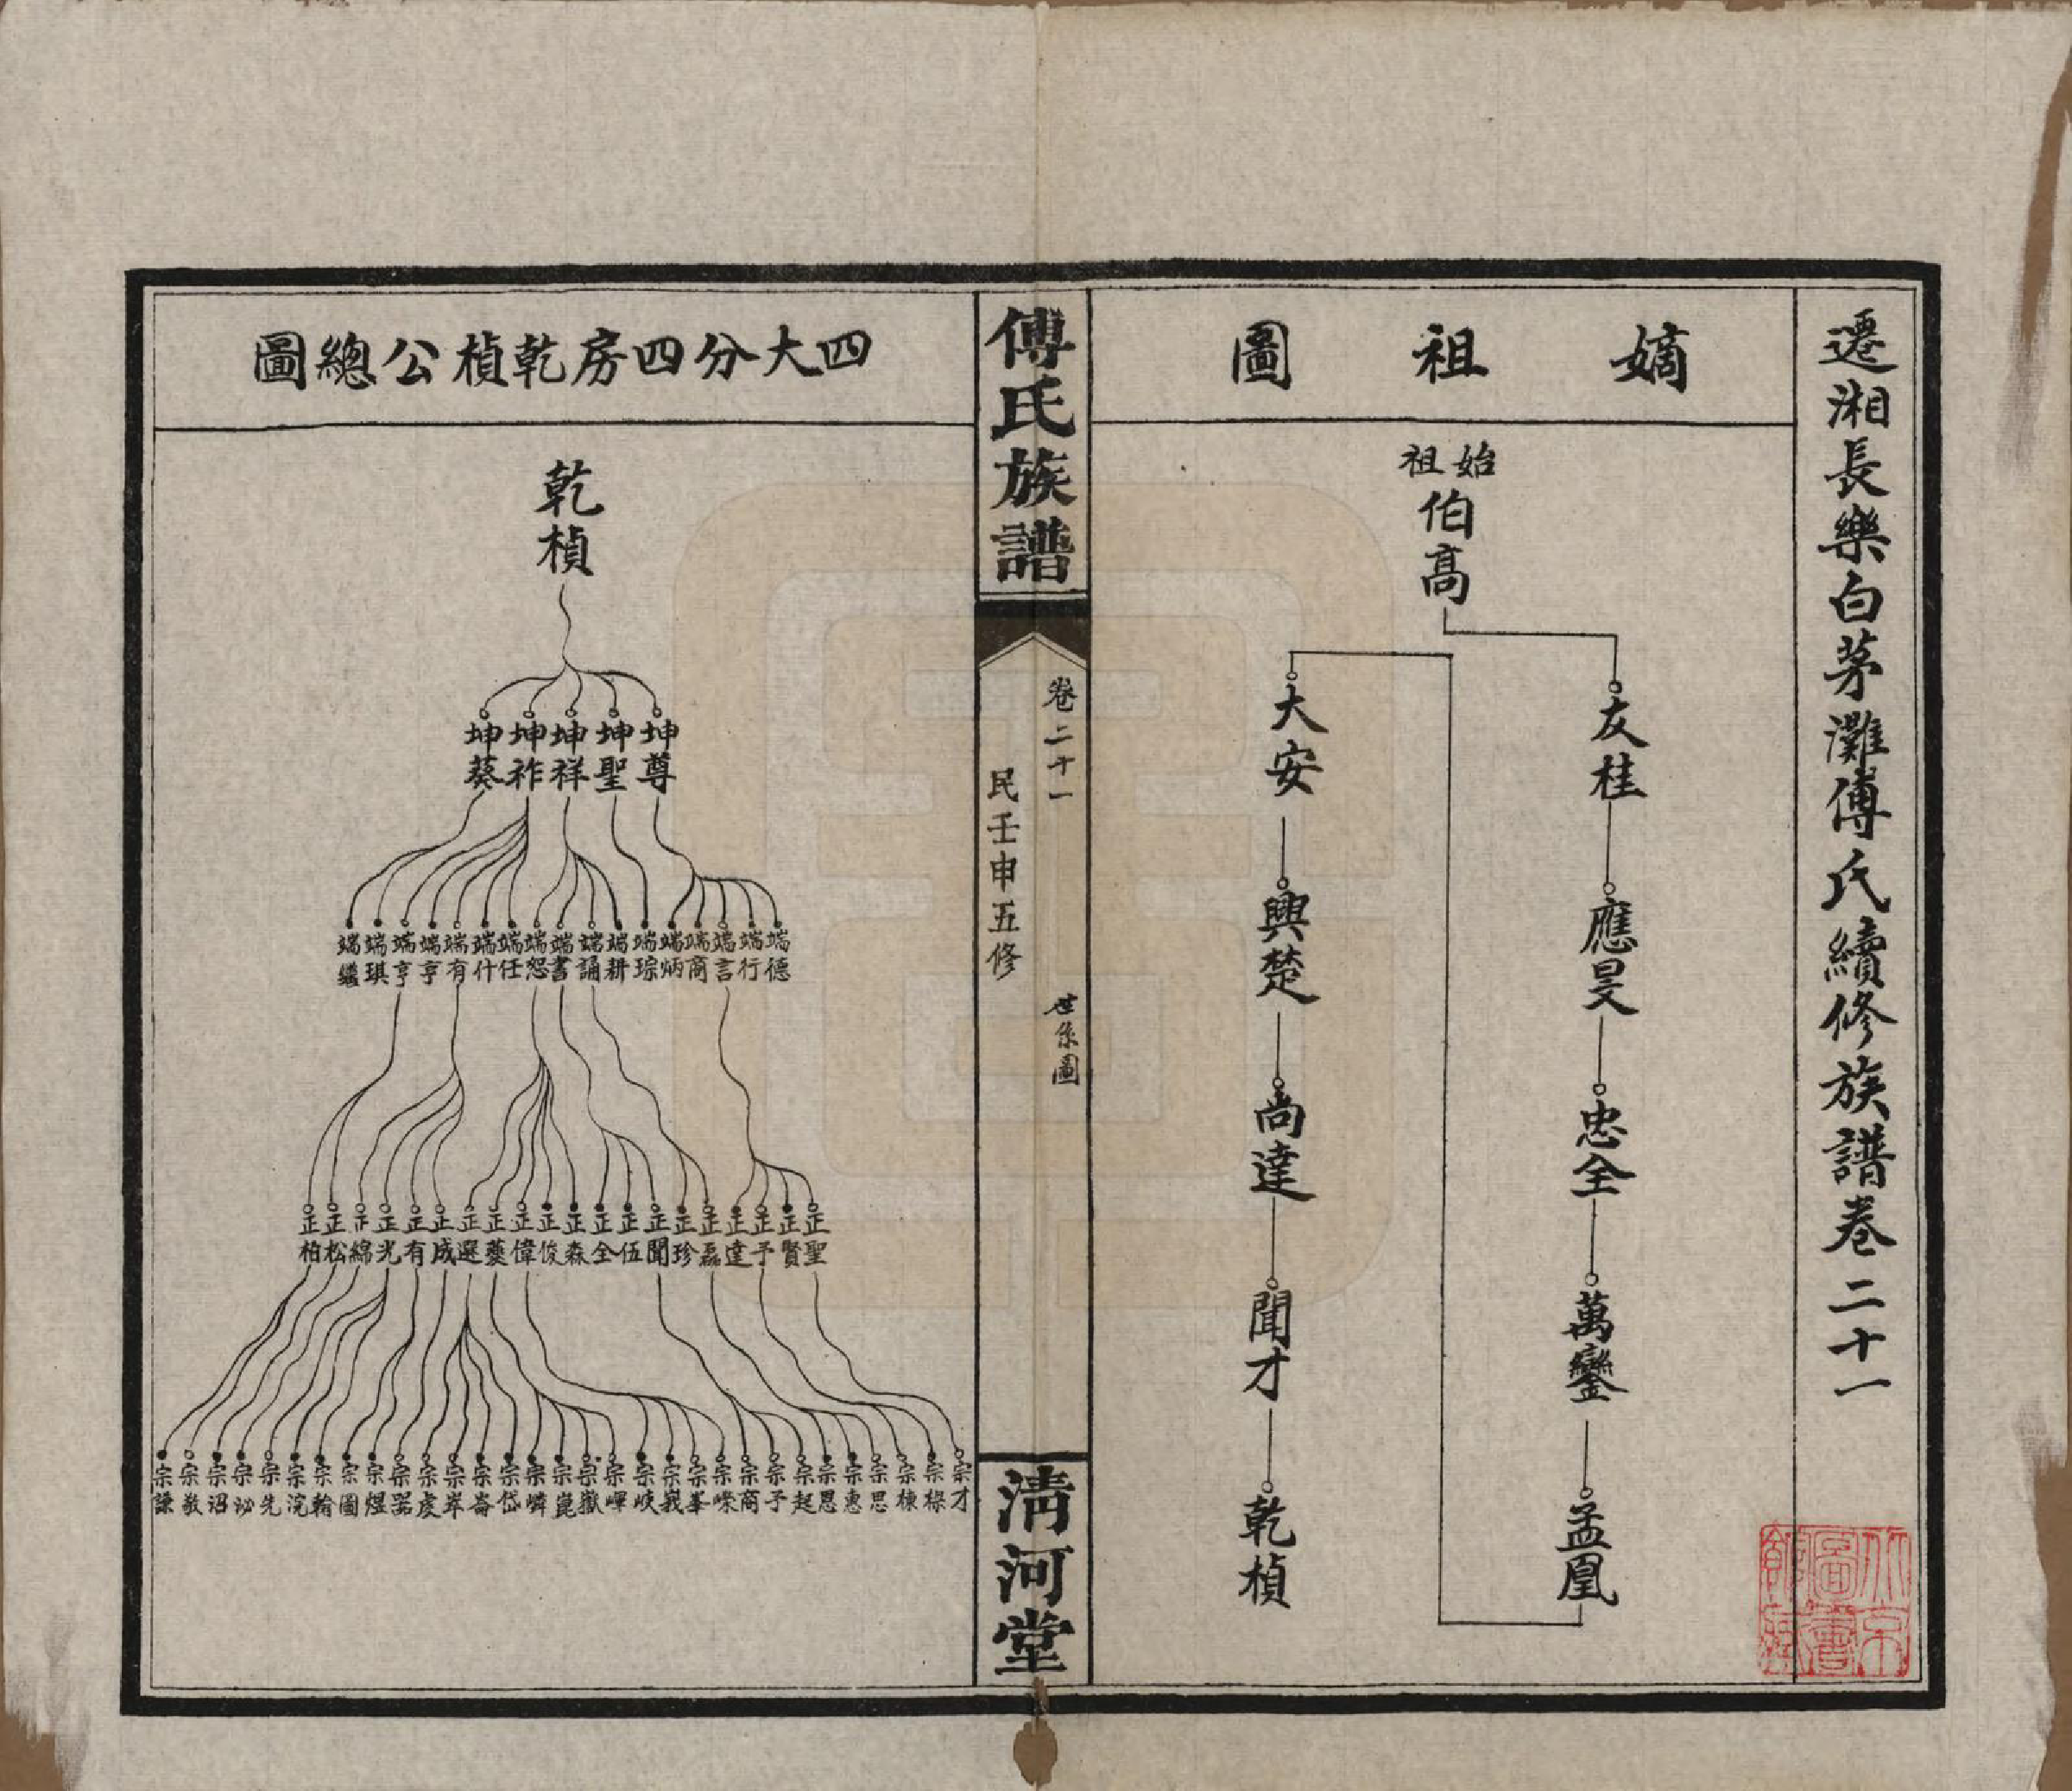 遷湘長樂白茅灘傅氏續修族譜卷二十一
嫡祖圖
始祖
伯高
友桂
應旻
忠全
萬鑾
孟凰
大安
興楚
尚達
聞才
乾楨
傅氏族譜
卷二十一
世系圖
民壬申五修
清河堂
四大分四房乾楨公總圖
乾楨
坤尊 坤聖 坤祥 坤祚 坤葵
端德 端行 端言 端商 端炳 端琮 端耕 端誦 端書 端恕 端任 端什 端有 端亨 端亨 端琪 端繼
正聖 正賢 正予 正達 正磊 正珍 正聞 正伍 正全 正森 正俊 正偉 正夔 正選 正成 正有 正光 正綿 正松 正柏
宗才 宗棣 宗棟 宗思 宗惠 宗恩 宗起 宗予 宗商 宗嶸 宗峯 宗峩 宗峽 宗嶧 宗嶽 宗崑 宗嶙 宗岱 宗崙 宗岸 宗虔 宗器 宗煜 宗圖 宗翰 宗浣 宗先 宗訟 宗詔 宗敬 宗謙
北京圖書館藏